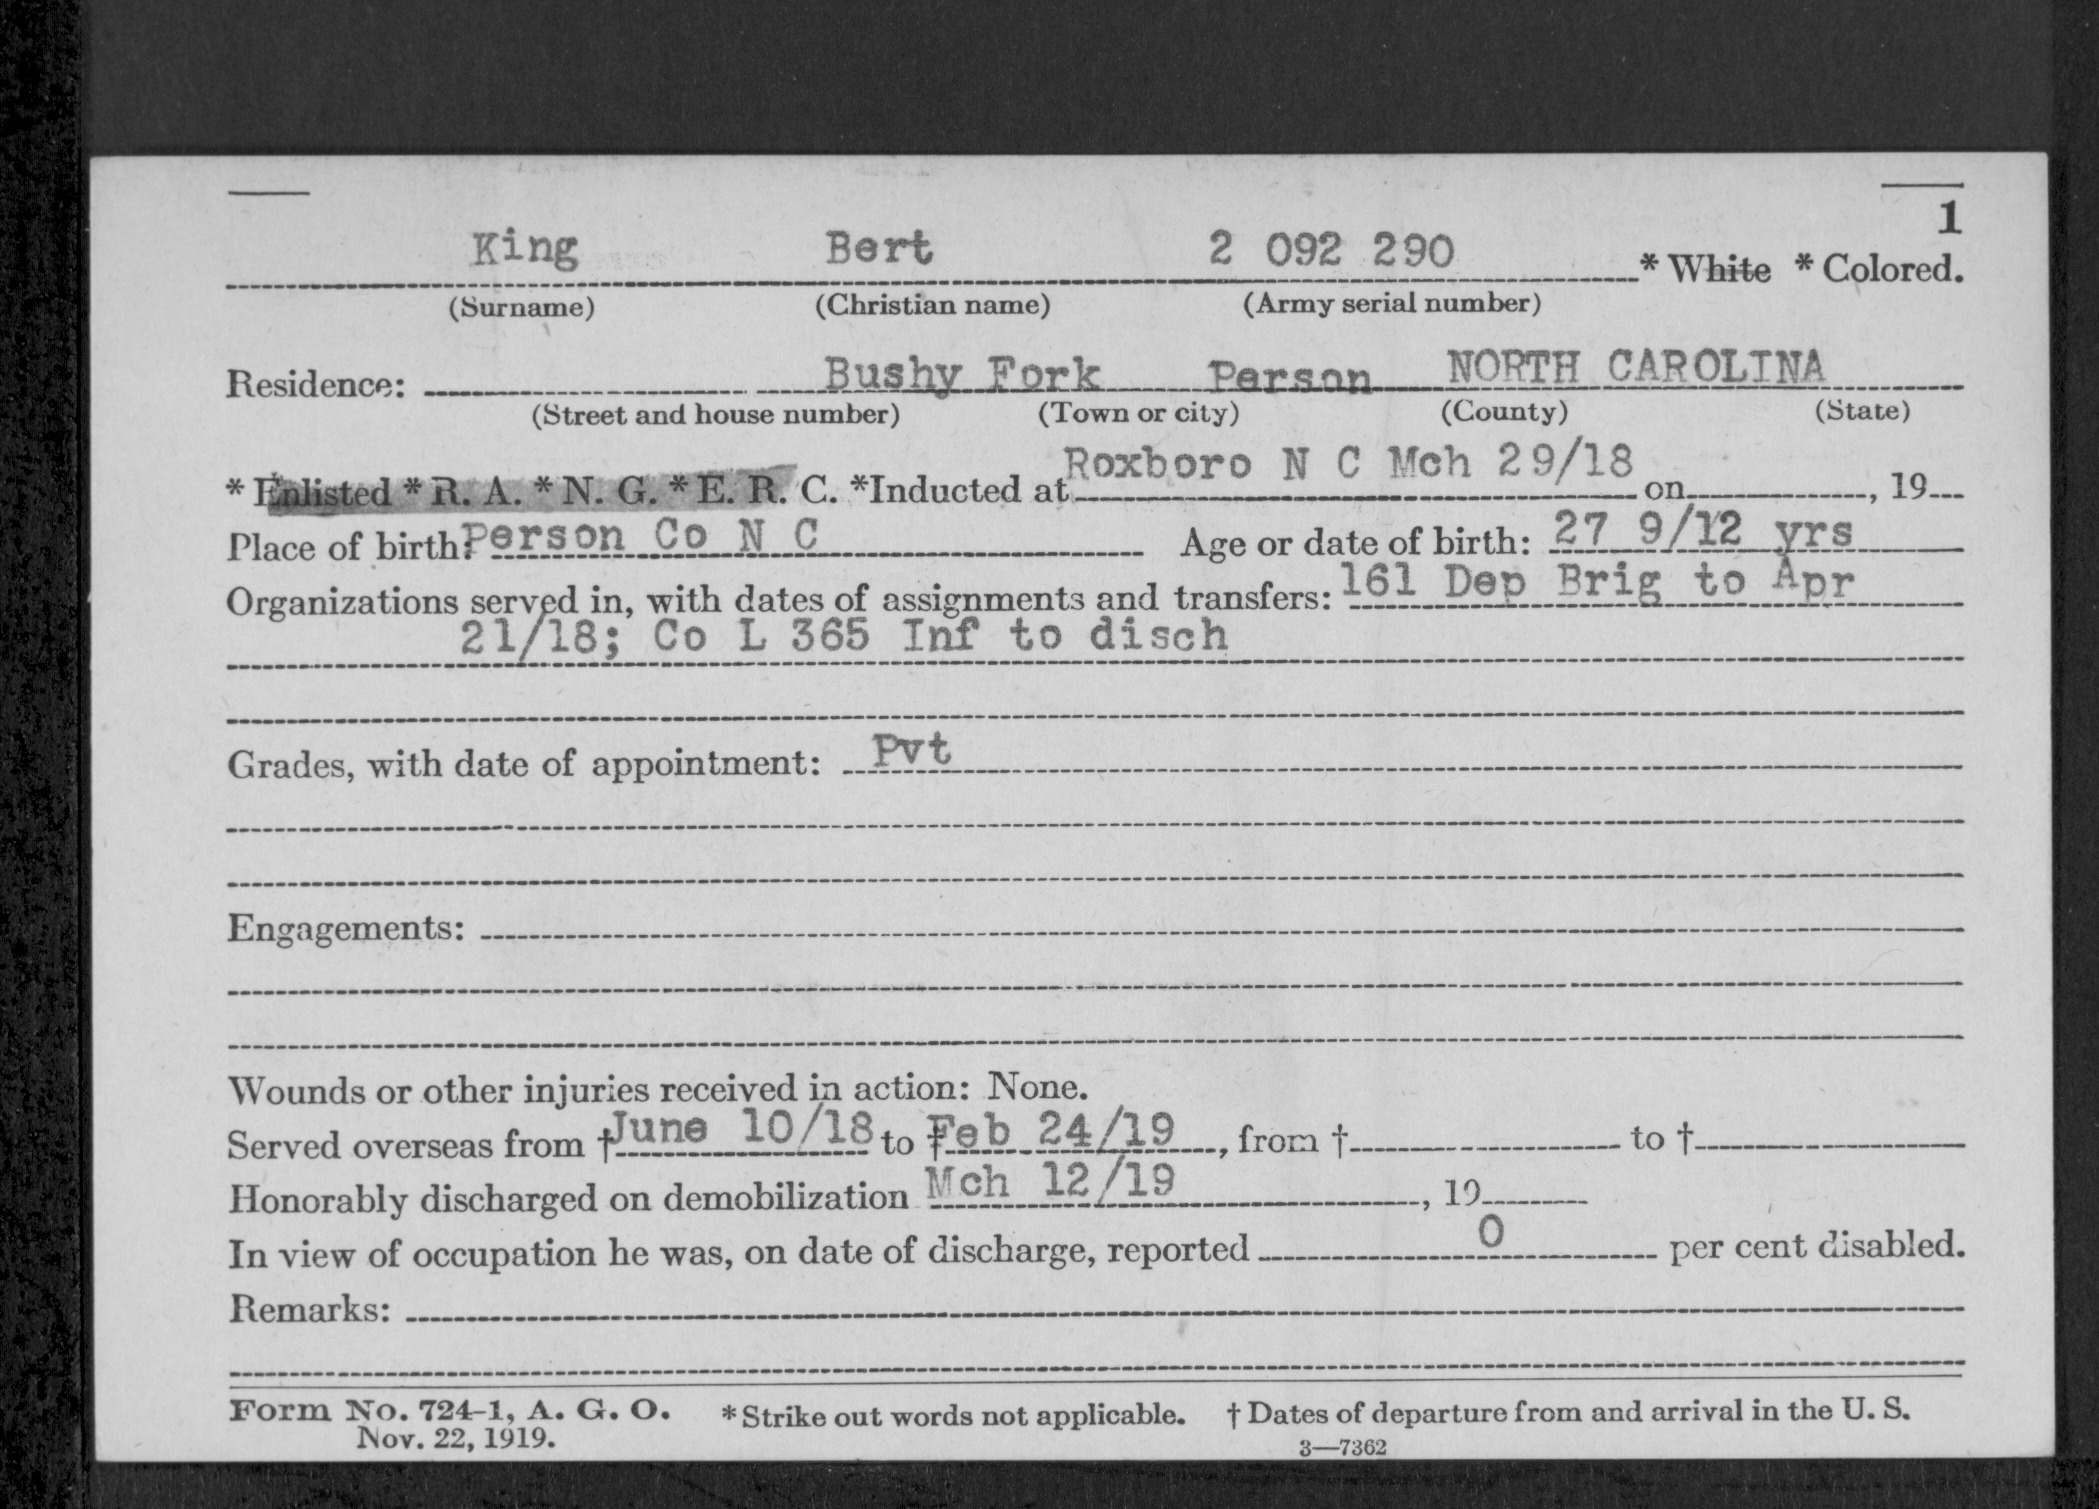 1
King Bert 2 092 290 * White * Colored.
(Surname) (Christian name) (Army serial number)
Residence: Bushy Fork Person NORTH CAROLINA
(Street and house number) (Town or city) (County) (State)
* Enlisted * R. A. * N. G. * E. R. C. *Inducted at Roxboro N C Mch 29/18 on , 19
Place of birth: Person Co N C Age or date of birth: 27 9/12 yrs
Organizations served in, with dates of assignments and transfers: 161 Dep Brig to Apr
21/18; Co L 365 Inf to disch
Grades, with date of appointment: Pvt
Engagements:
Wounds or other injuries received in action: None.
Served overseas from † June 10/18 to † Feb 24/19, from † to †
Honorably discharged on demobilization Mch 12/19, 19
In view of occupation he was, on date of discharge, reported 0 per cent disabled.
Remarks:
Form No. 724-1, A. G. O. * Strike out words not applicable. † Dates of departure from and arrival in the U. S.
Nov. 22, 1919. 3—7362